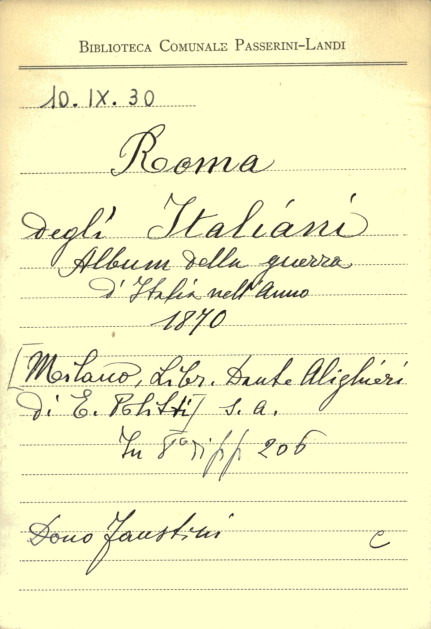 BIBLIOTECA COMUNALE PASSERINI-LANDI
10. IX. 30
Roma
degli Italiani
Album della guerra
d'Italia nell'Anno
1870
[Milano, Libr. Dante Alighieri
di E. Politti] s. a.
In 8° di pp 206
Dono Faustini
C